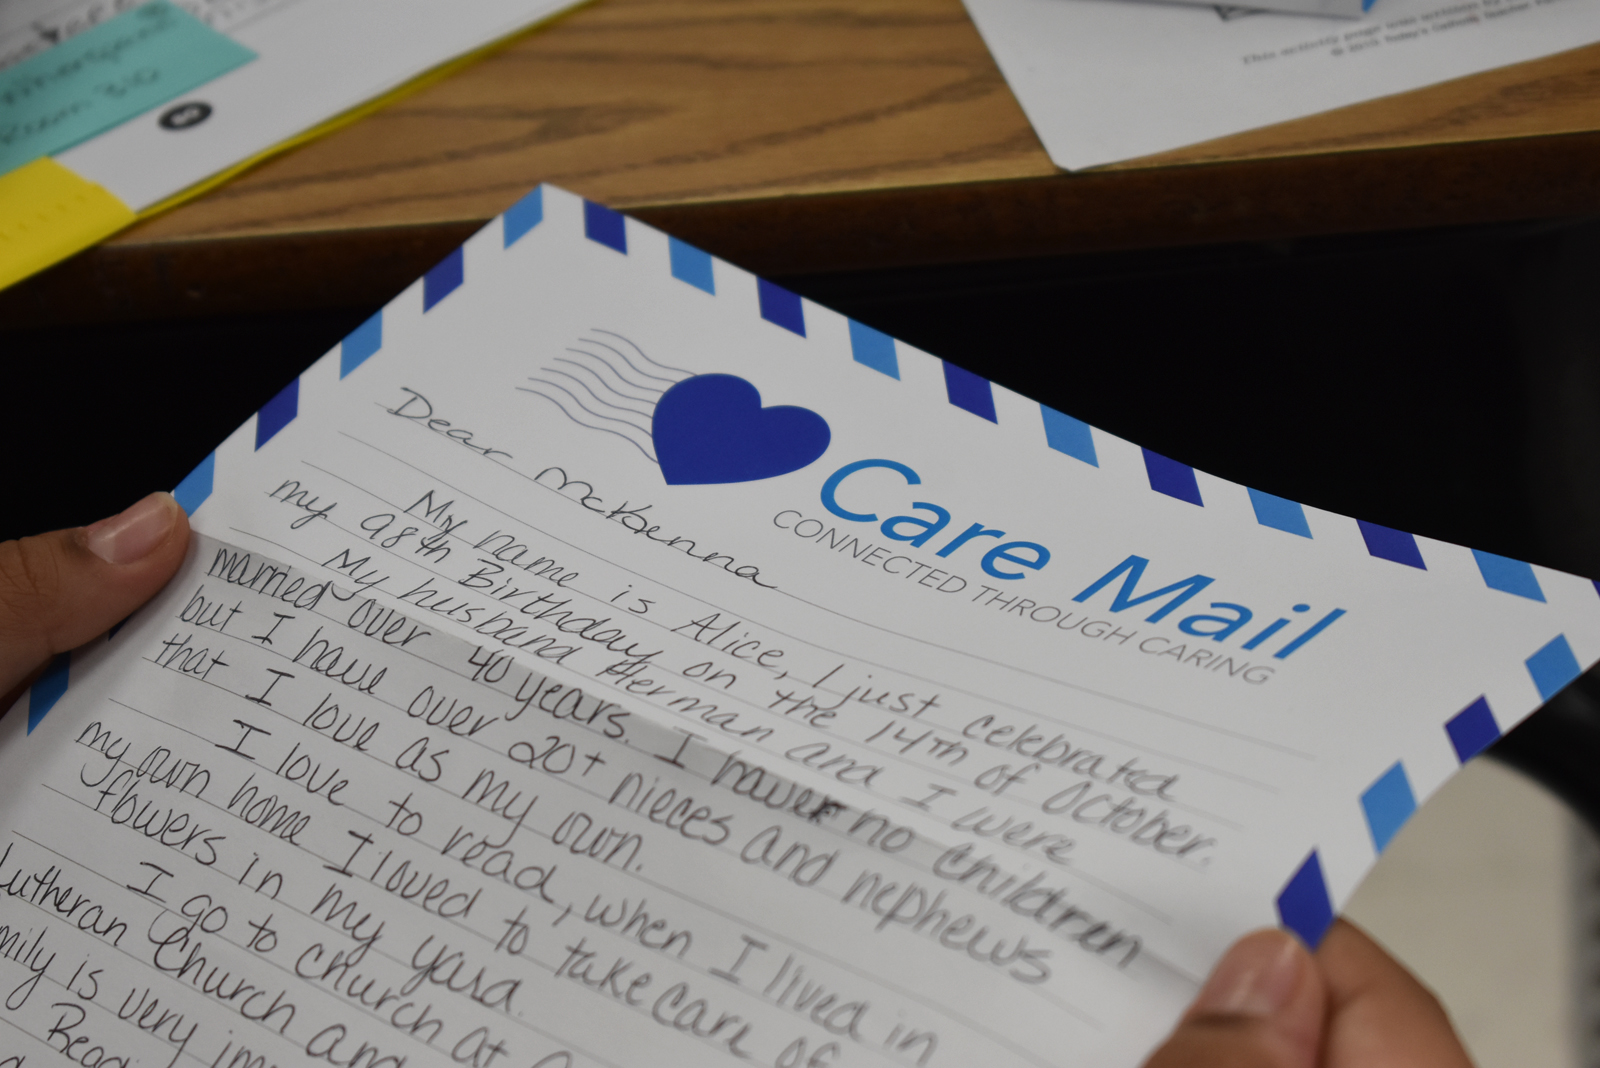 Room 310
This activity page was written by
Care Mail
CONNECTED THROUGH CARING
Dear McKenna
My name is Alice, I just celebrated
my 98th Birthday on the 14th of October.
My husband Herman and I were
married over 40 years. I have no children
but I have over 20+ nieces and nephews
that I love as my own.
I love to read, when I lived in
my own home I loved to take care of
flowers in my yard.
I go to church at
Lutheran Church and
mily is very im
Read